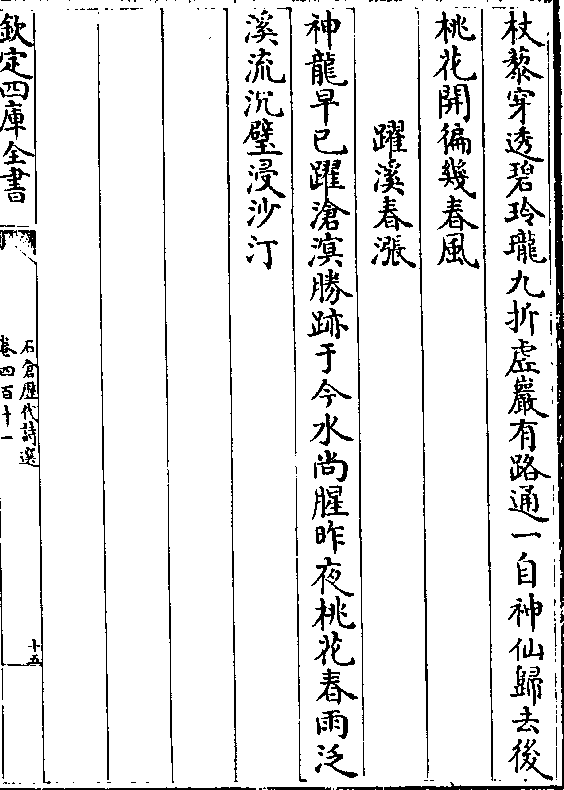 杖藜穿透碧玲瓏九折虛巖有路通一自神仙歸去後
桃花開徧幾春風
躍溪春漲
神龍早已躍滄溟勝跡于今水尚腥昨夜桃花春雨泛
溪流沉璧浸沙汀
欽定四庫全書
石倉歷代詩選
卷四百十一
十五